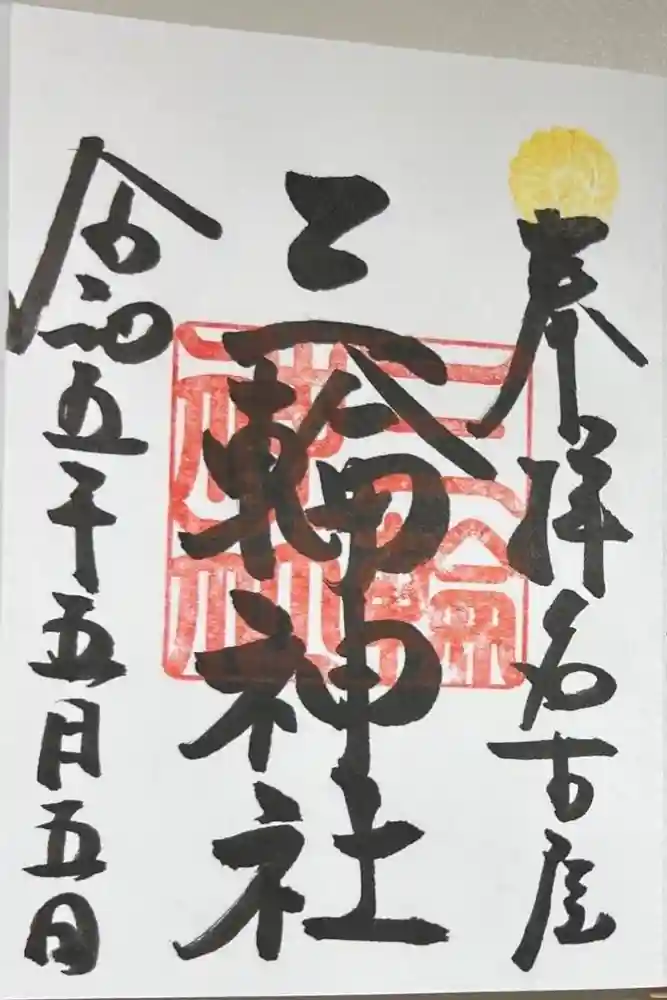 奉拝 名古屋
三輪神社
三輪神社
令和五年五月五日